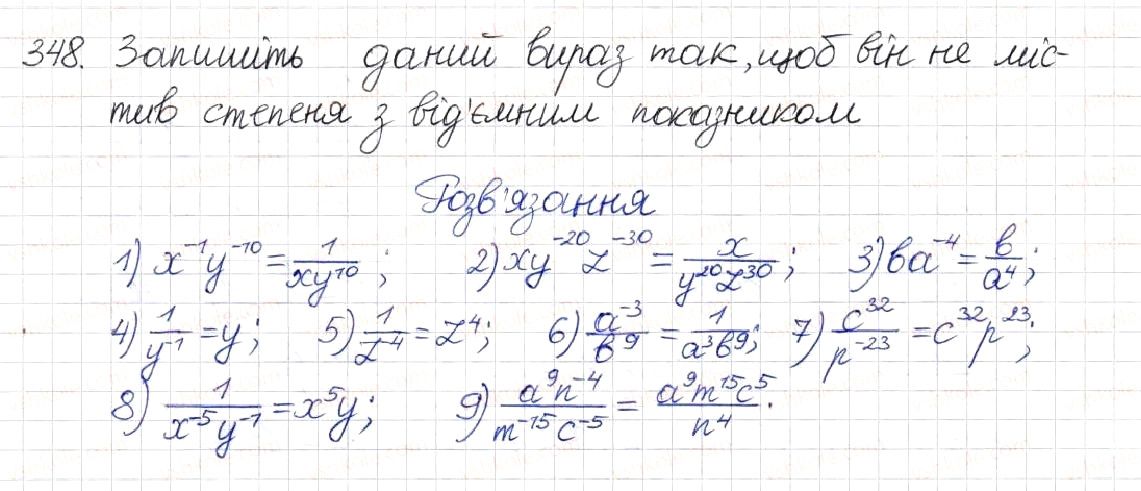 348. Запишіть даний вираз так, щоб він не міс-
тив степеня з від'ємним показником
Розв'язання
1) x⁻¹y⁻¹⁰ = 1/(xy¹⁰); 2) xy⁻²⁰z⁻³⁰ = x/(y²⁰z³⁰); 3) ba⁻⁴ = b/a⁴;
4) 1/y⁻¹ = y; 5) 1/z⁻⁴ = z⁴; 6) a⁻³/b⁹ = 1/(a³b⁹); 7) c³²/p⁻²³ = c³²p²³;
8) 1/(x⁻⁵y⁻¹) = x⁵y; 9) (a⁹n⁻⁴)/(m⁻¹⁵c⁻⁵) = (a⁹m¹⁵c⁵)/n⁴.